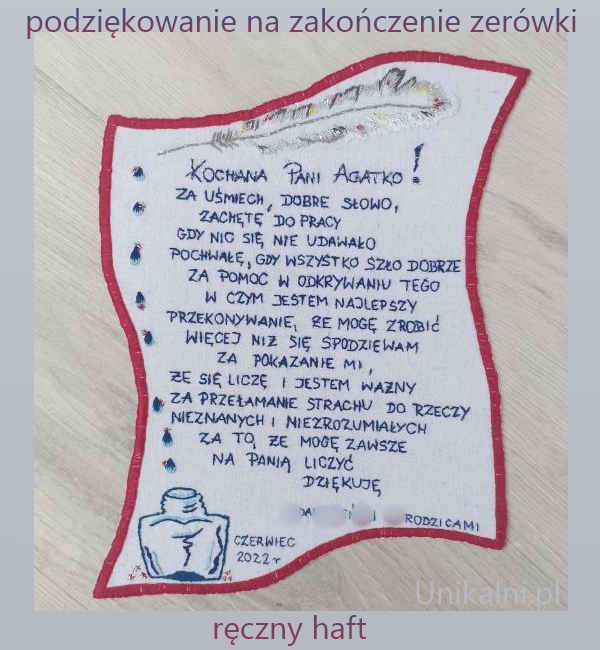 podziękowanie na zakończenie zerówki
KOCHANA PANI AGATKO!
ZA UŚMIECH, DOBRE SŁOWO,
ZACHĘTĘ DO PRACY
GDY NIC SIĘ NIE UDAWAŁO
POCHWAŁĘ, GDY WSZYSTKO SZŁO DOBRZE
ZA POMOC W ODKRYWANIU TEGO
W CZYM JESTEM NAJLEPSZY
PRZEKONYWANIE, ŻE MOGĘ ZROBIĆ
WIĘCEJ NIŻ SIĘ SPODZIEWAM
ZA POKAZANIE MI,
ŻE SIĘ LICZĘ I JESTEM WAŻNY
ZA PRZEŁAMANIE STRACHU DO RZECZY
NIEZNANYCH I NIEZROZUMIAŁYCH
ZA TO, ŻE MOGĘ ZAWSZE
NA PANIĄ LICZYĆ
DZIĘKUJĘ
RODZICAMI
CZERWIEC
2022 r
Unikalni.pl
ręczny haft